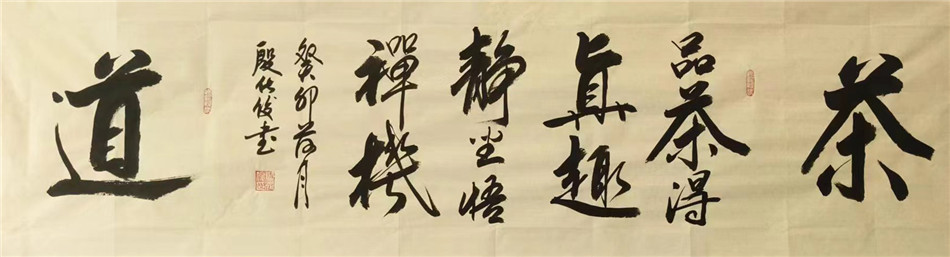 茶
品茶得
真趣
静坐悟
禪機
癸卯荷月
殷佐俊书
道